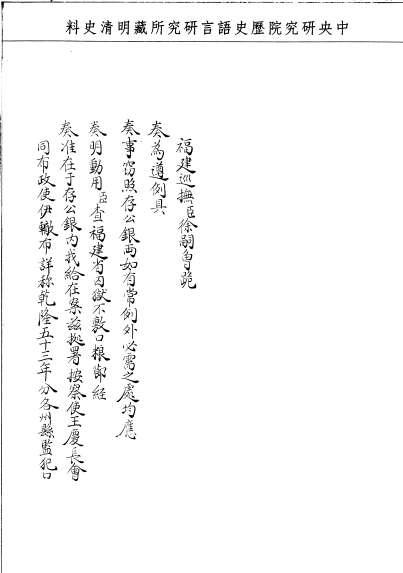 中央研究院歷史語言研究所藏明清史料
福建巡撫臣徐嗣曾跪
奏為遵例具
奏事窃照存公銀両如有常例外必需之處均應
奏明動用臣查福建省囚獄不敷口粮節經
奏准在于存公銀內找給在案茲據署按察使王慶長會
同布政使伊轍布詳称乾隆五十三年分各州縣監犯口